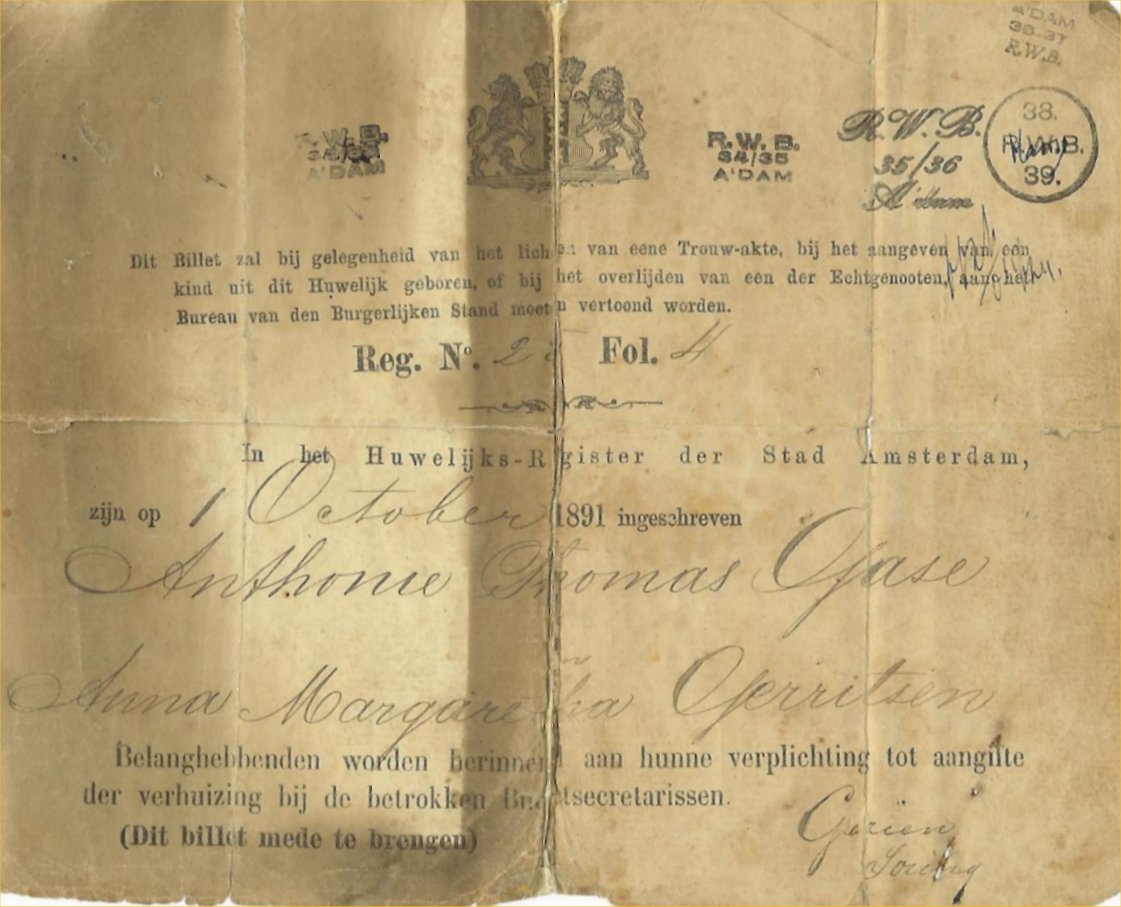 A'DAM
36-37
R.W.B.
R.W.B.
34/35
A'DAM
R.W.B.
34/35
A'DAM
R.W.B.
35/36
A'dam
38.
R.W.B.
39.
Dit Billet zal bij gelegenheid van het lich van eene Trouw-akte, bij het aangeven van een
kind uit dit Huwelijk geboren, of bij het overlijden van een der Echtgenooten, aan het
Bureau van den Burgerlijken Stand moeten vertoond worden.
Reg. No. 2 Fol. 4
In het Huwelijks-Register der Stad Amsterdam,
zijn op 1 October 1891 ingeschreven
Anthonie Thomas Gase
Anna Margaretha Gerritsen
Belanghebbenden worden herinnerd aan hunne verplichting tot aangifte
der verhuizing bij de betrokken Buurtsecretarissen.
(Dit billet mede te brengen)